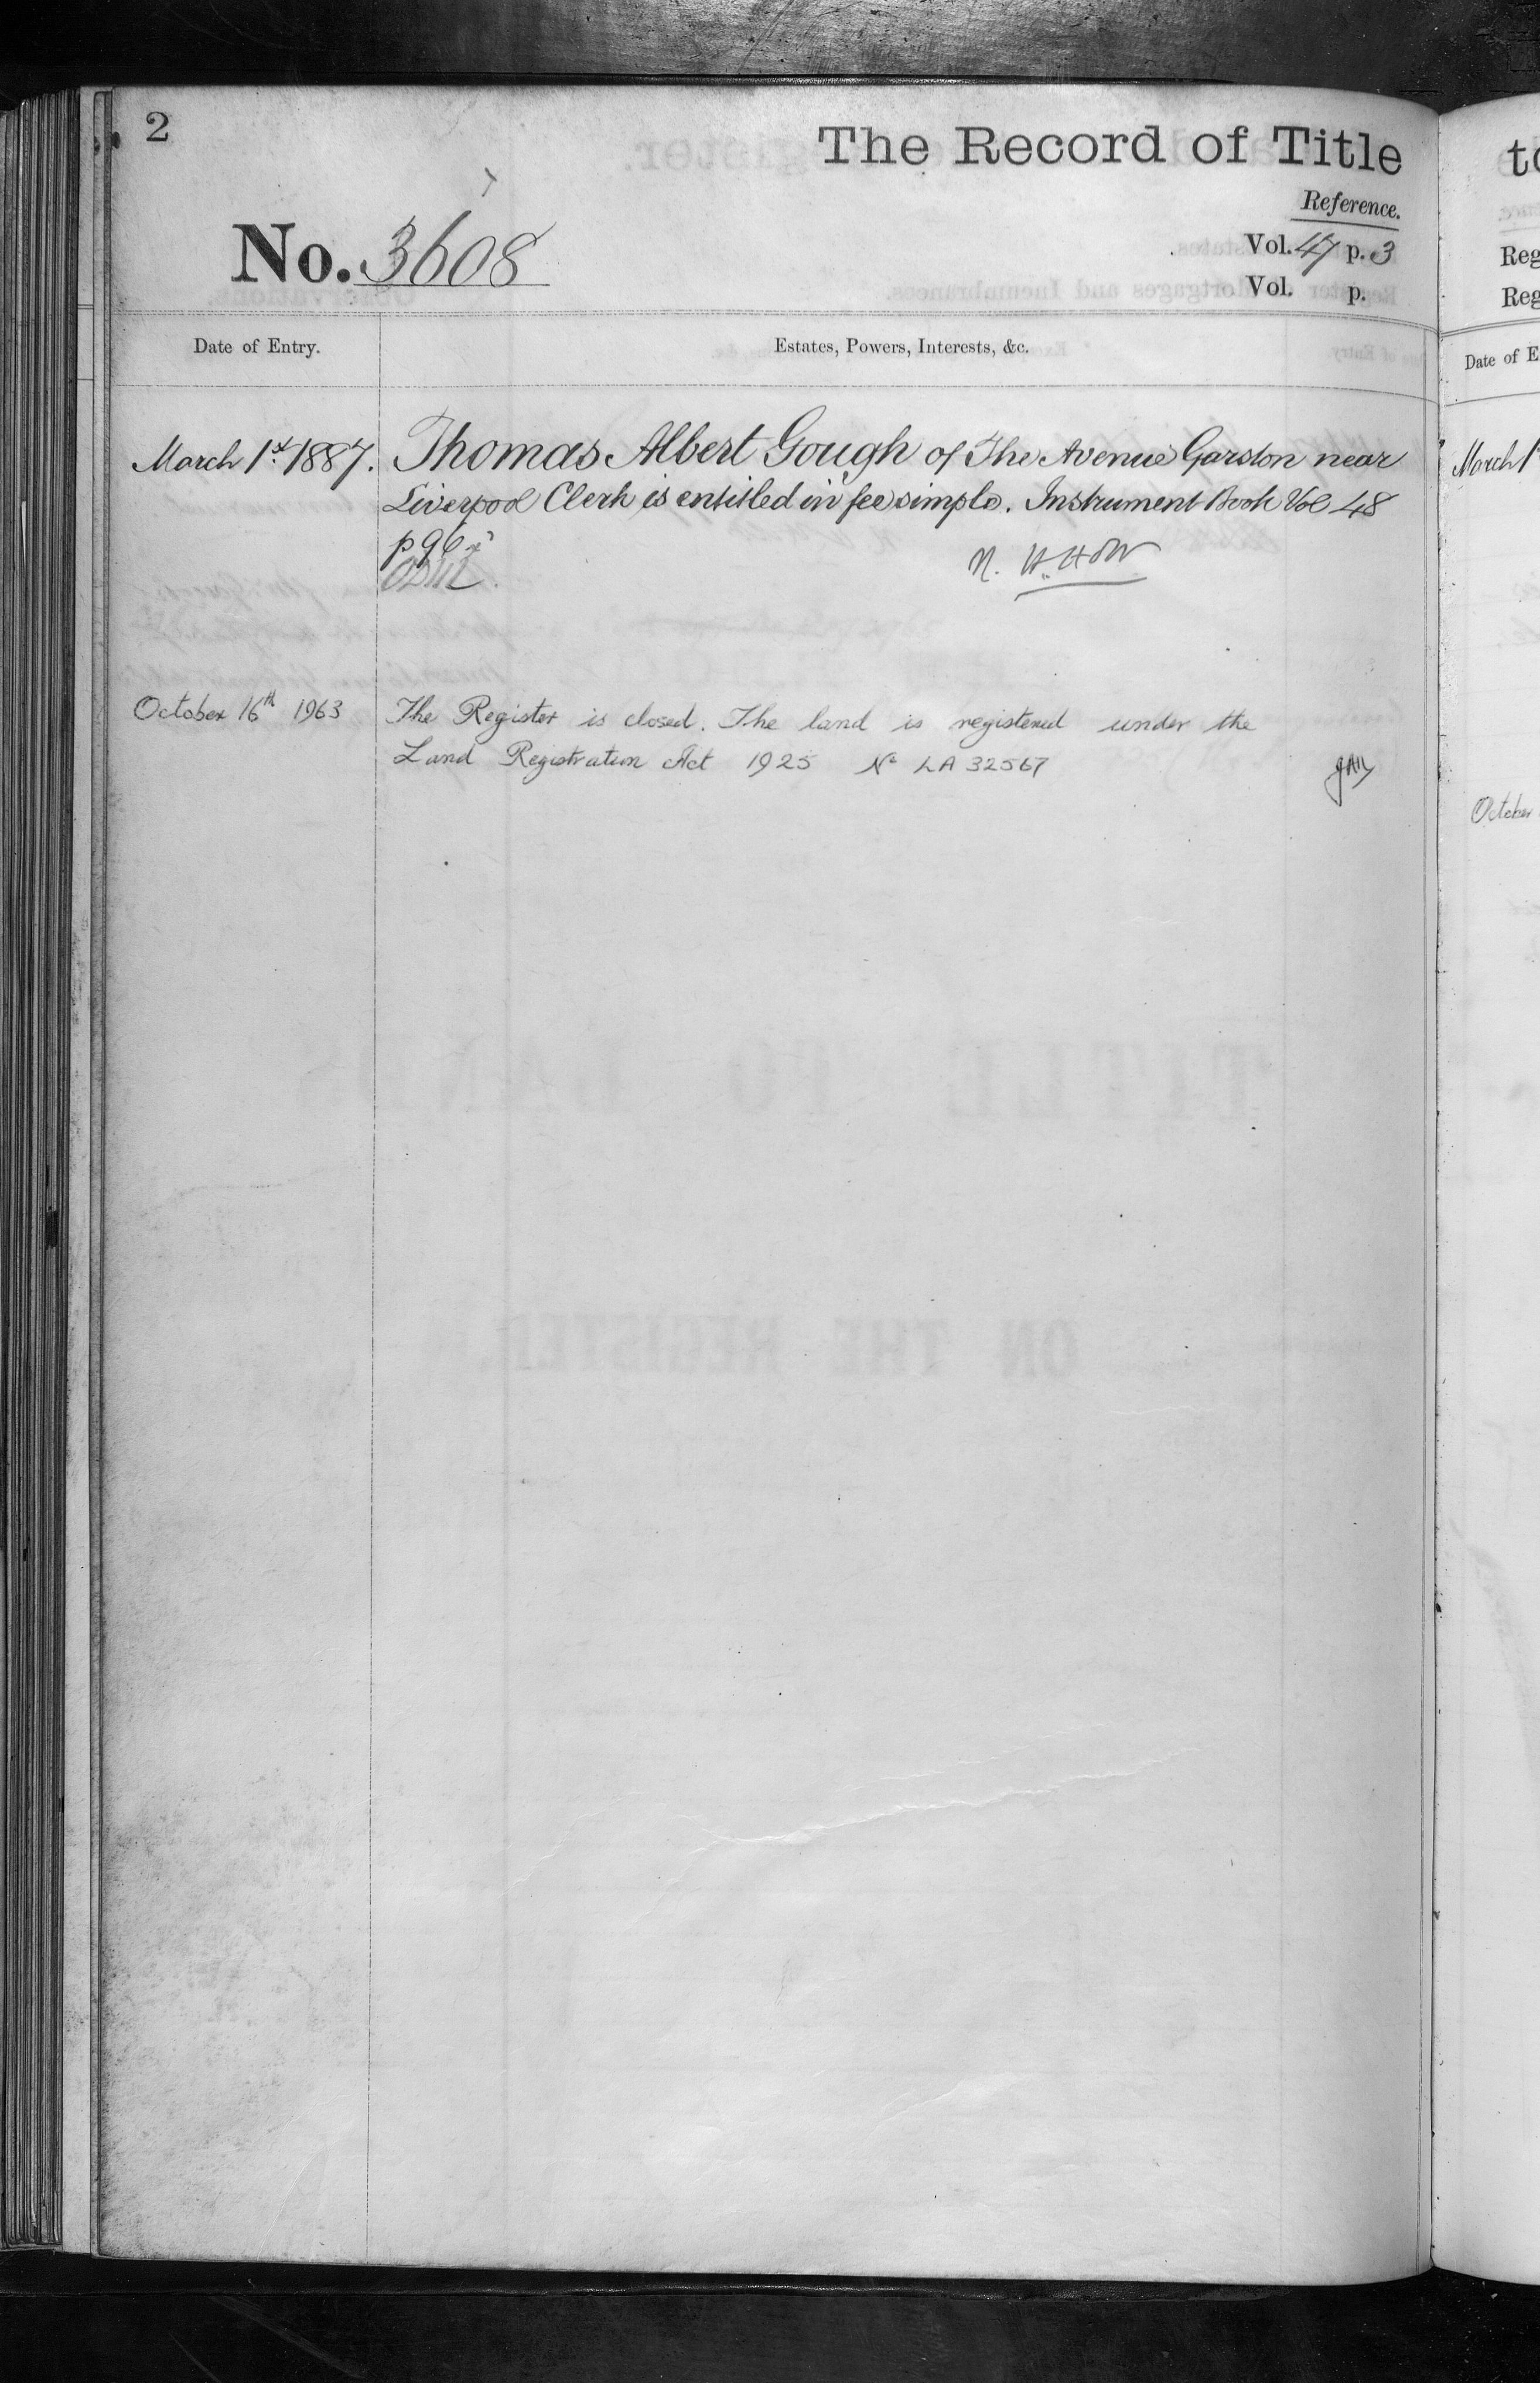 2
The Record of Title
Reference.
No. 3608
Vol. 47 p. 3
Vol. p.
Date of Entry.
Estates, Powers, Interests, &c.
March 1st 1887. Thomas Albert Gough of The Avenue Garston near
Liverpool Clerk is entitled in fee simple. Instrument Book Vol 48
p 96
October 16th 1963 The Register is closed. The land is registered under the
Land Registration Act 1925 No LA 32567
to
Reg
Reg
Date of E
March 1
October